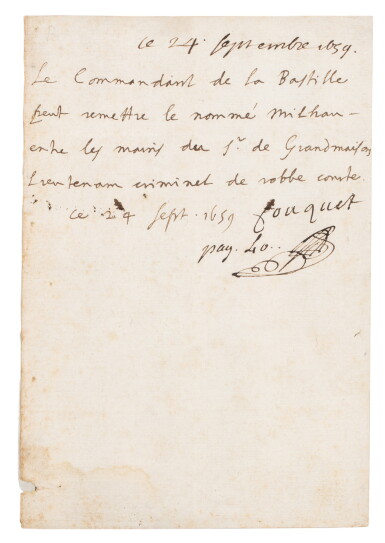 ce 24. septembre 1659.
Le Commandant de la Bastille
peut remettre le nommé Milhau –
entre les mains du Sr. de Grandmaison
Lieutenant criminel de robbe courte.
ce 24 Sept. 1659 fouquet
pag. 40.